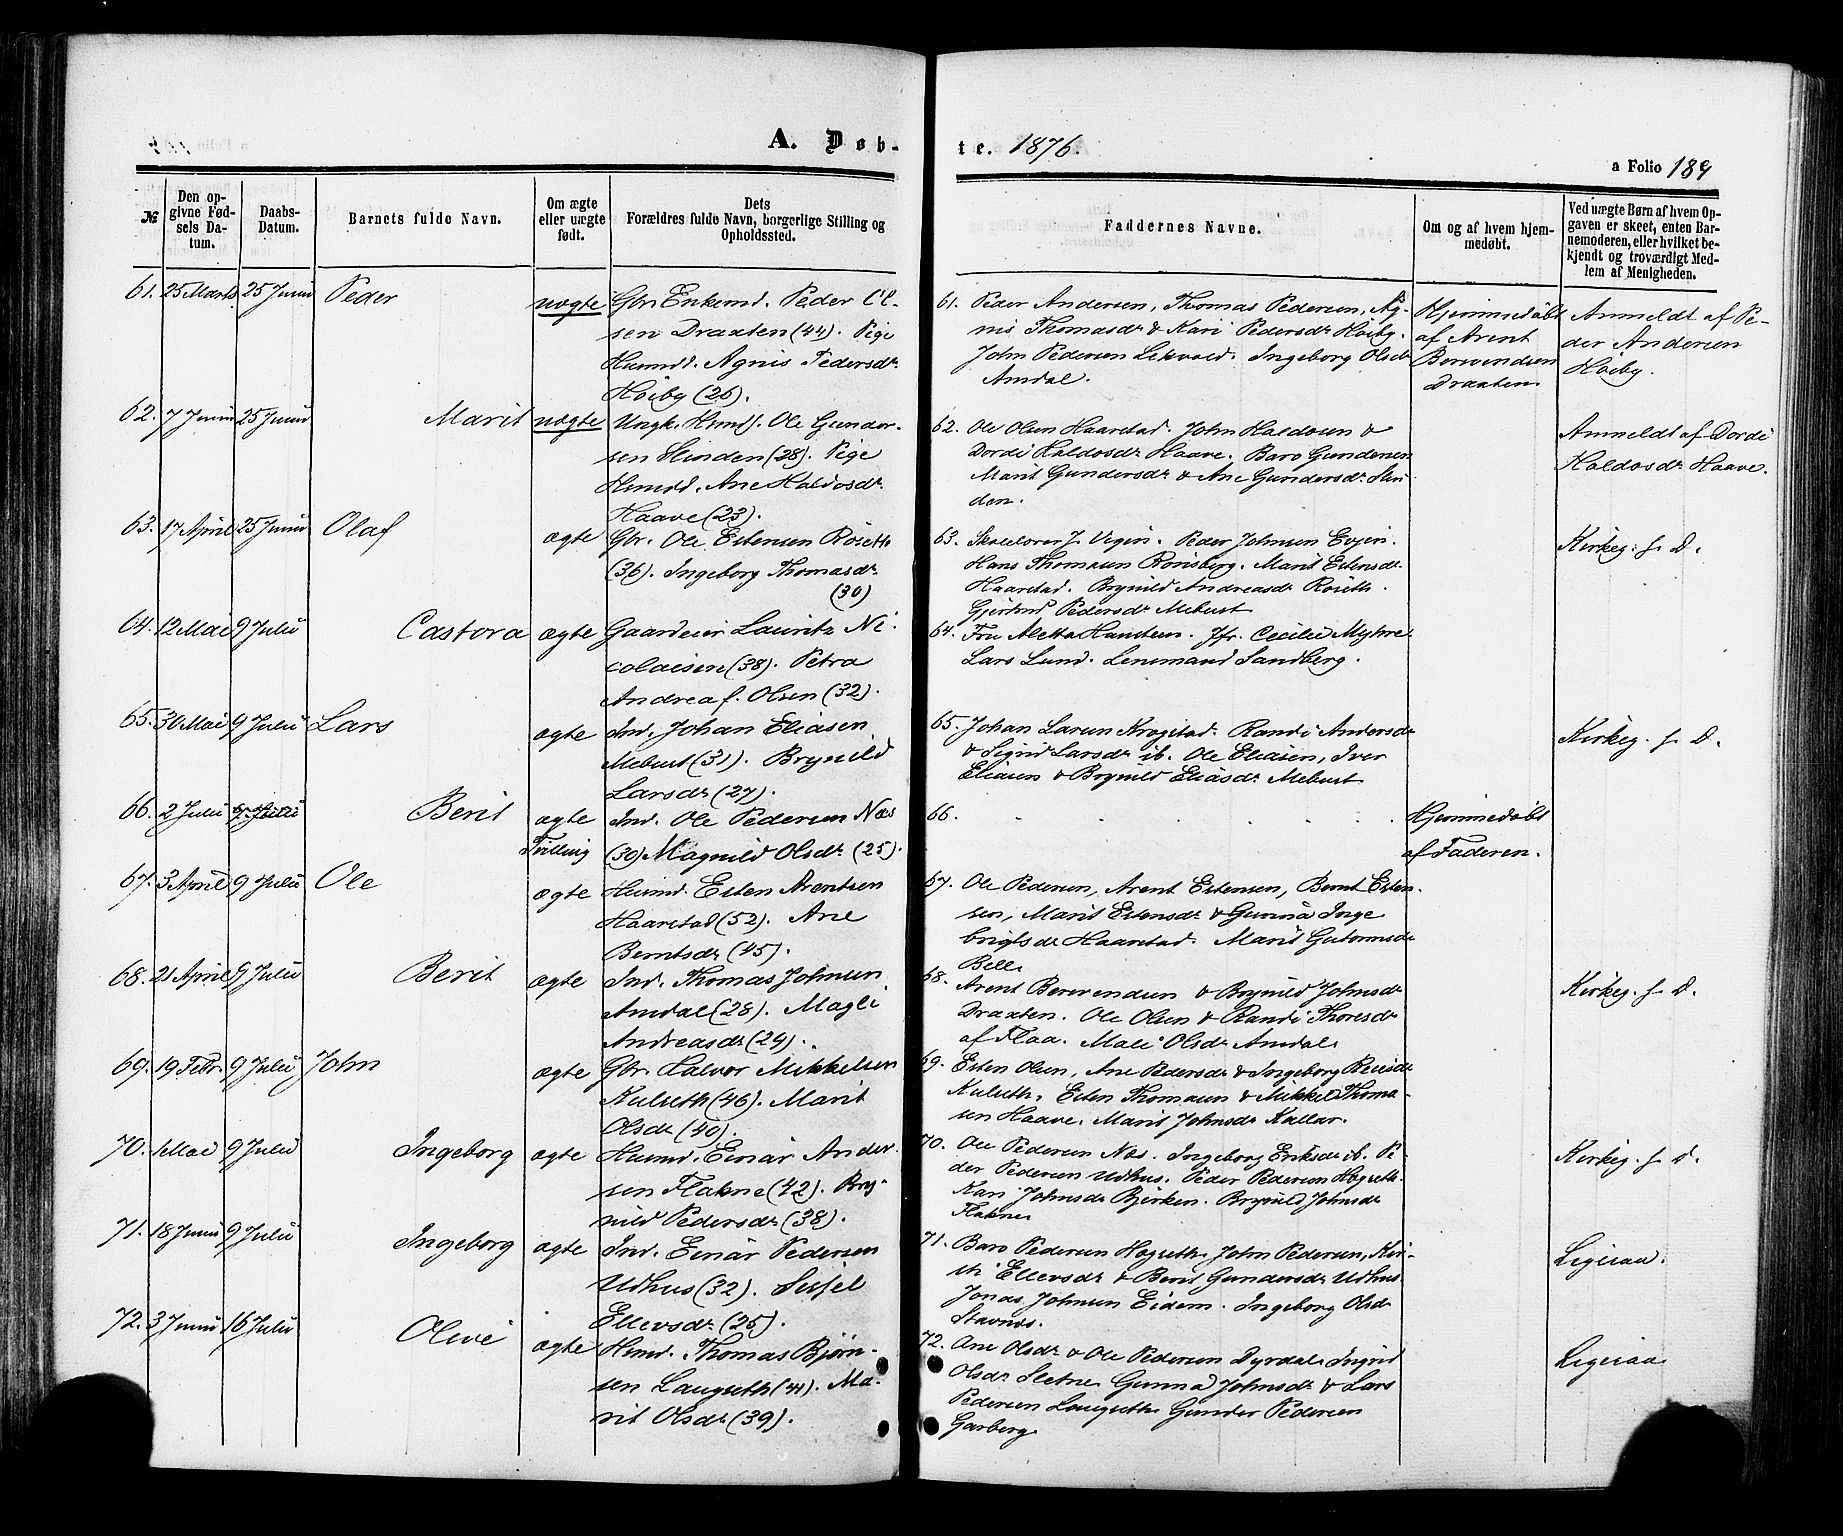 A. Døb-
te. 1876.
a Folio 189
№
Den op-
givne Fød-
sels Da-
tum.
Daabs-
Datum.
Barnets fulde Navn.
Om ægte
eller uægte
født.
Dets
Forældres fulde Navn, borgerlige Stilling og
Opholdssted.
Faddernes Navne.
Om og af hvem hjem-
medøbt.
Ved uægte Børn af hvem Op-
gaven er skeet, enten Bar-
nemoderen, eller hvilket be-
kjendt og troværdigt Med-
lem af Menigheden.
61. 25 Marts 25 Juni Peder uægte Gbr. Enkemd. Peder Ol-
sen Draxten (44). Pige
Huusmd. Agnis Pedersdr
Høiby (26).
61. Peder Andersen, Thomas Pedersen, Ag-
nis Thomasdr & Kari Pedersdr Høiby.
John Pedersen Lekvold. Ingeborg Olsdr
Amdal.
Hjemmedøbt
af Arent
Berevendsen
Draxten
Anmeldt af Pe-
der Andersen
Høiby.
62. 7 Juni 25 Juni Marit uægte Ungk. Husmd. Ole Gunder-
sen Slinden (28). Pige
Husmd. Ane Haldosdr
Haave (23).
62. Ole Olsen Haarstad. John Haldosen &
Dordi Haldosdr Haave. Baro Gundersen
Marit Gundersdr & Ane Gundersdr Slin-
den.
Anmeldt af Dordi
Haldosdr Haave.
63. 17 April 25 Juni Olaf ægte Gbr. Ole Estensen Røseth
(36). Ingeborg Thomasdr
(30)
63. Skolelærer J. Vigen. Peder Johnsen Evjen.
Hans Thomasen Rønsberg. Marit Estensdr
Haarstad. Brynild Andreasdr Roseth.
Gjertrud Pedersdr Mebust
Kirkeg. f. D.
64. 12 Mai 9 Juli Castora ægte Gaardeier Lauritz Ni-
colaisen (38). Petra
Andrea f. Olsen (32).
64. Fru Aletta Hansteen. Jfr. Cecilie Myhre
Lars Lund. Lensmand Sandberg.
65. 30 Mai 9 Juli Lars ægte Ind. Johan Eliasen
Mebust (31). Brynild
Larsdr (27).
65. Johan Larsen Krogstad. Randi Andersdr
& Sigrid Larsdr ib. Ole Eliasen, Iver
Eliasen & Brynild Eliasdr Mebust
Kirkeg. f. D.
66. 2 Juli 9 Juli Berit ægte Ind. Ole Pedersen Næs
Tvilling (30) Magnild Olsdr (25).
66. . . . . . . .
Hjemmedøbt
af Faderen.
67. 3 April 9 Juli Ole ægte Husmd. Esten Arentsen
Haarstad (52). Ane
Berntsdr (45).
67. Ole Pedersen, Arent Estensen, Bernt Esten-
sen, Marit Estensdr & Gunnia Inge
brigtsdr Haarstad. Marit Guttormsdr
Bell.
68. 21 April 9 Juli Berit ægte Ind. Thomas Johnsen
Amdal (28). Magli
Andreasdr (29).
68. Arent Berevendsen & Brynild Johnsdr
Draxten. Ole Olsen & Randi Thoresdr
af Flaa. Mali Olsdr Amdal.
Kirkeg. f. D.
69. 19 Febr. 9 Juli John ægte Gbr. Halvor Mikkelsen
Kulseth (46). Marit
Olsdr (40).
69. Esten Olsen, Ane Pedersdr & Ingeborg
Kulseth. Esten Thomasen & Mikkel Thoma-
sen Haave. Marit Johnsdr Kallar.
70. 1 Mai 9 Juli Ingeborg ægte Husmd. Einar Ander-
sen Flakne (42). Bry-
nild Pedersdr (38).
70. Ole Pedersen Næs. Ingeborg Eriksdr ib. Pe-
der Pedersen Udhus. Peder Pedersen Høgseth.
Kari Johnsdr Bjerken. Brynild Johnsdr
Flakne
Kirkeg. f. D.
71. 18 Juni 9 Juli Ingeborg ægte Ind. Einar Pedersen
Udhus (32). Sissel
Ellevsdr (25).
71. Baro Pedersen Høgseth. John Pedersen, Kir-
sti Ellevsdr & Berit Gundersdr Udhus.
Jonas Johnsen Eidem. Ingeborg Olsdr
Stavnes.
Ligesaa.
72. 3 Juni 16 Juli Olive ægte Husmd. Thomas Bjørn-
sen Langseth (41). Ma-
rit Olsdr (39).
72. Ane Olsdr & Ole Pedersen Dyrdal. Ingrid
Olsdr Sletne. Gunnia Johnsdr & Lars
Pedersen Langseth. Gunder Pedersen
Garberg.
Ligesaa